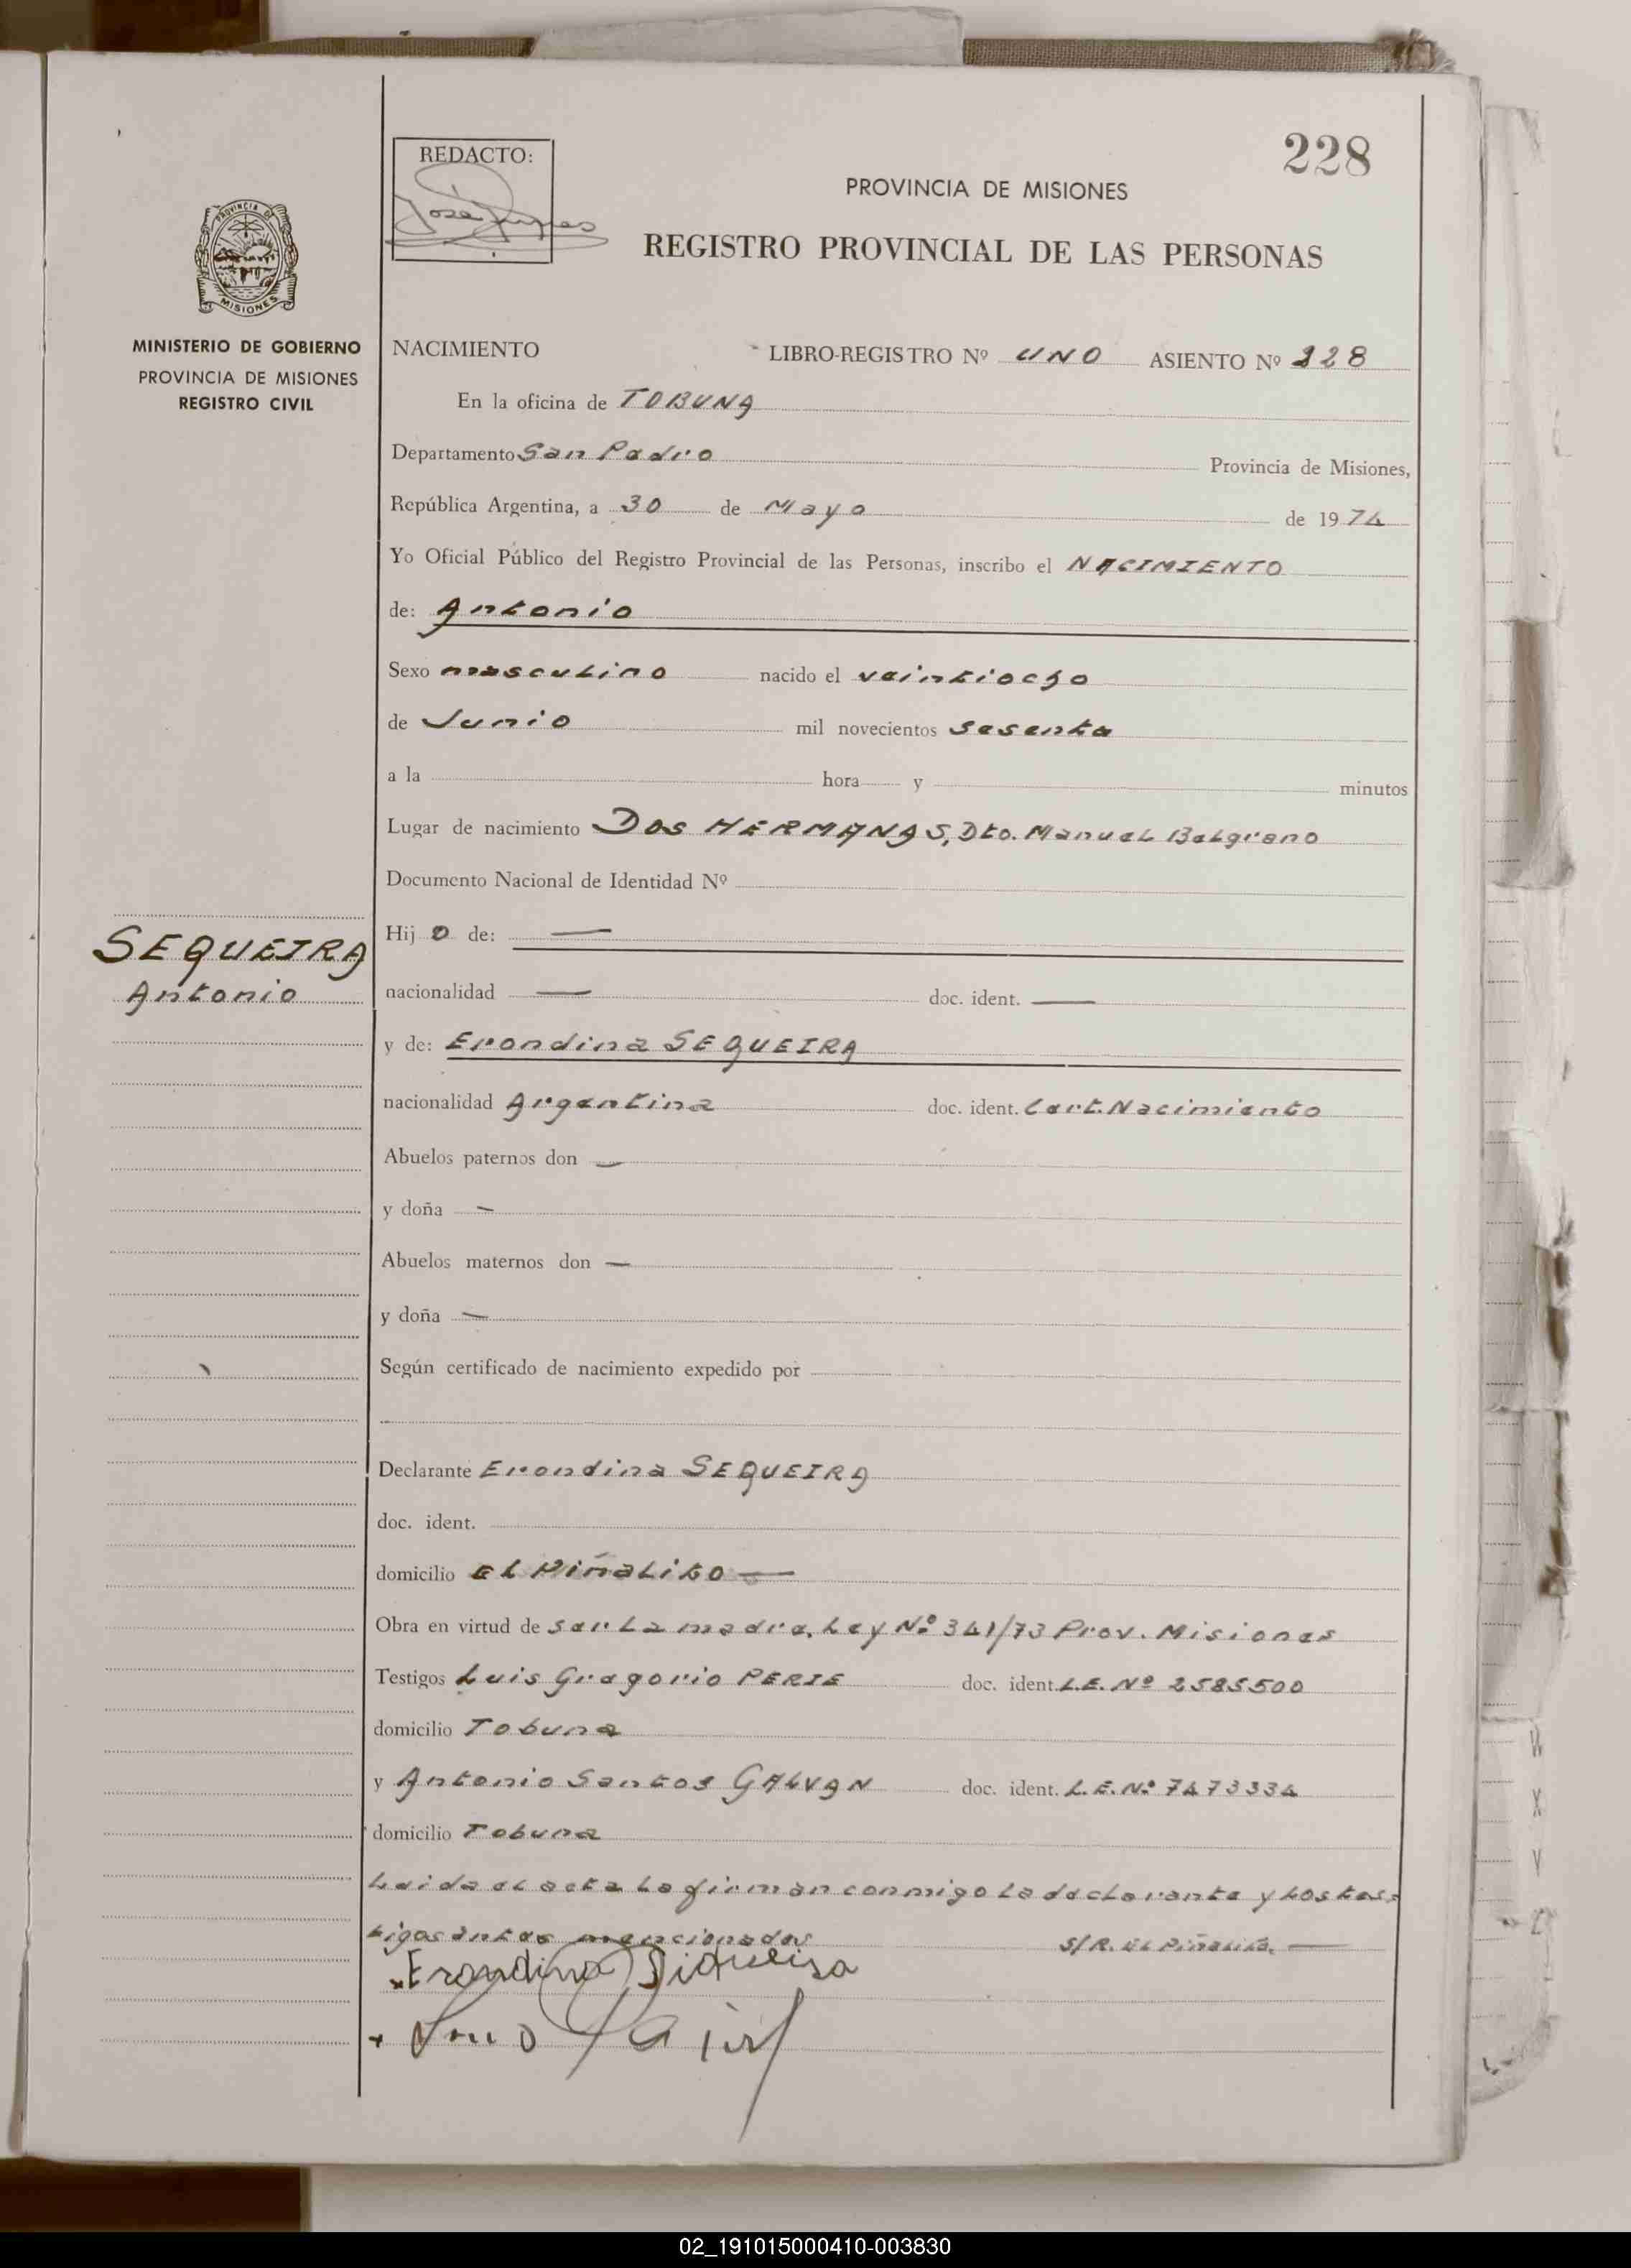 228
REDACTO:
PROVINCIA DE MISIONES
REGISTRO PROVINCIAL DE LAS PERSONAS
PROVINCIA DE
MISIONES
MINISTERIO DE GOBIERNO
PROVINCIA DE MISIONES
REGISTRO CIVIL
NACIMIENTO LIBRO-REGISTRO Nº UNO ASIENTO Nº 228
En la oficina de TOBUNA
Departamento San Pedro Provincia de Misiones,
República Argentina, a 30 de Mayo de 1974
Yo Oficial Público del Registro Provincial de las Personas, inscribo el NACIMIENTO
de: Antonio
Sexo masculino nacido el veintiocho
de Junio mil novecientos sesenta
a la hora y minutos
Lugar de nacimiento DOS HERMANAS, Dto. Manuel Belgrano
Documento Nacional de Identidad Nº
SEQUEIRA
Antonio
Hij o de: —
nacionalidad — doc. ident. —
y de: Erondina SEQUEIRA
nacionalidad Argentina doc. ident. Cert. Nacimiento
Abuelos paternos don —
y doña —
Abuelos maternos don —
y doña —
Según certificado de nacimiento expedido por
Declarante Erondina SEQUEIRA
doc. ident.
domicilio El Piñalito —
Obra en virtud de ser la madre, Ley Nº 341/73 Prov. Misiones
Testigos Luis Gregorio PERIE doc. ident. L.E. Nº 2585500
domicilio Tobuna
y Antonio Santos GALVAN doc. ident. L.E. Nº 7473334
domicilio Tobuna
Leida el acta la firman conmigo la declarante y los tes-
tigos antes mencionados S/R. El Piñalito. —
Erondina
02_191015000410-003830